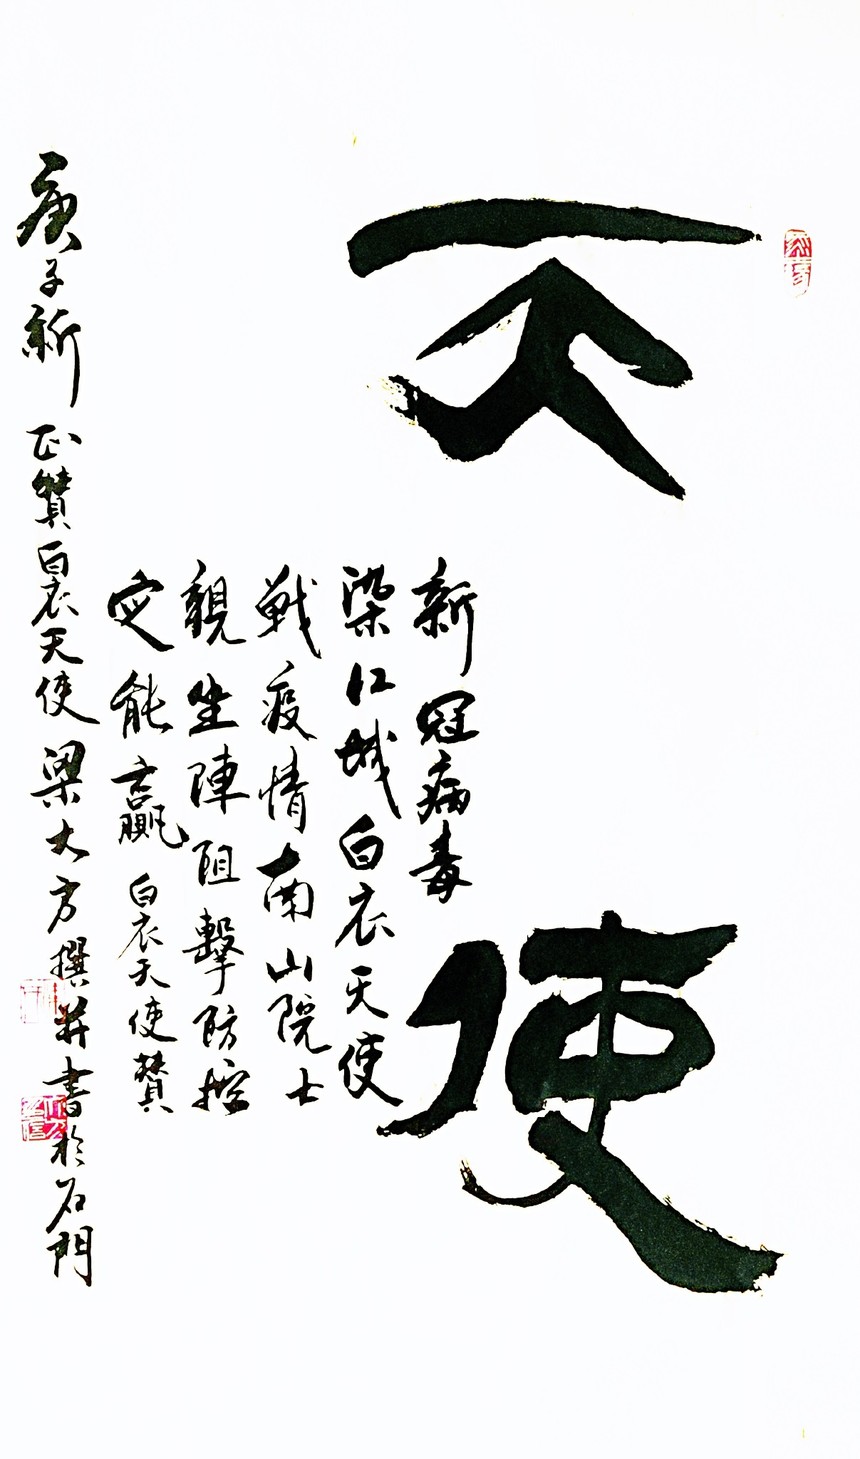 天使
新冠病毒
染江城白衣天使
戰疫情南山院士
親坐陣阻擊防控
定能贏白衣天使贊
庚子新正贊白衣天使梁大方撰并書於石門